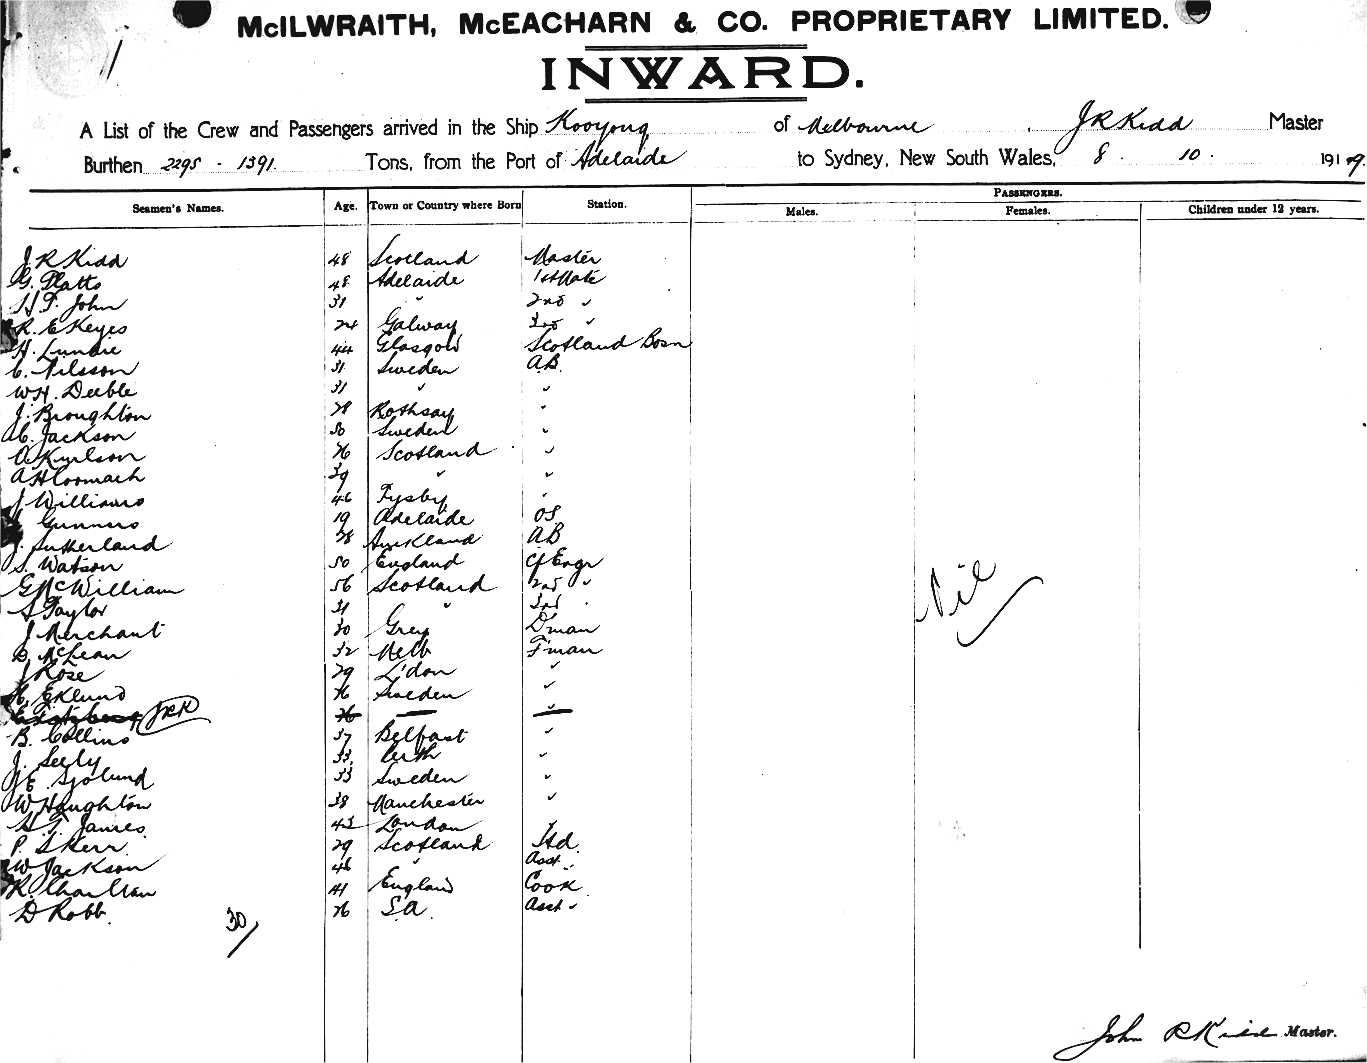 McILWRAITH, McEACHARN & CO. PROPRIETARY LIMITED.
INWARD.
A List of the Crew and Passengers arrived in the Ship Kooyong of Melbourne, J R Kidd Master
Burthen 2295 - 1391 Tons, from the Port of Adelaide to Sydney, New South Wales, 8 . 10 . 1919.
Seamen's Names. Age. Town or Country where Born Station. PASSENGERS.
Males. Females. Children under 12 years.
J R Kidd 48 Scotland Master
G. Platts 48 Adelaide 1st Mate
H P. John 31 " 2nd "
R. E Keyes 24 Galway 3rd "
H. Lundie 44 Glasgow Scotland Born
C. Nilsson 31 Sweden A.B.
W H. Deeble 31 " "
J. Broughton 28 Rothsay "
C. Jackson 50 Sweden "
26 Scotland "
A H Cormack 39 " "
J Williams 46 "
Gunners 19 Adelaide OS
J. Sutherland 28 Auckland AB
S. Watson 50 England Cf Engr
G McWilliam 56 Scotland 2nd "
S Taylor 31 " 3rd "
J Merchant 30 Grey D'man
D. McLean 32 Melb F'man
J Rose 29 L'don "
Eklund 26 Sweden "
JRK 26 — "
B. Collins 37 Belfast "
J. Seely 33 Perth "
E. Sjolund 33 Sweden "
W Houghton 38 Manchester "
H. T. James 43 London "
P. S Kerr 29 Scotland Std.
W Jackson 46 " Asst "
R. Charlton 41 England Cook
D Robb. 26 S.A. Asst "
30/
Nil
John R Kidd Master.